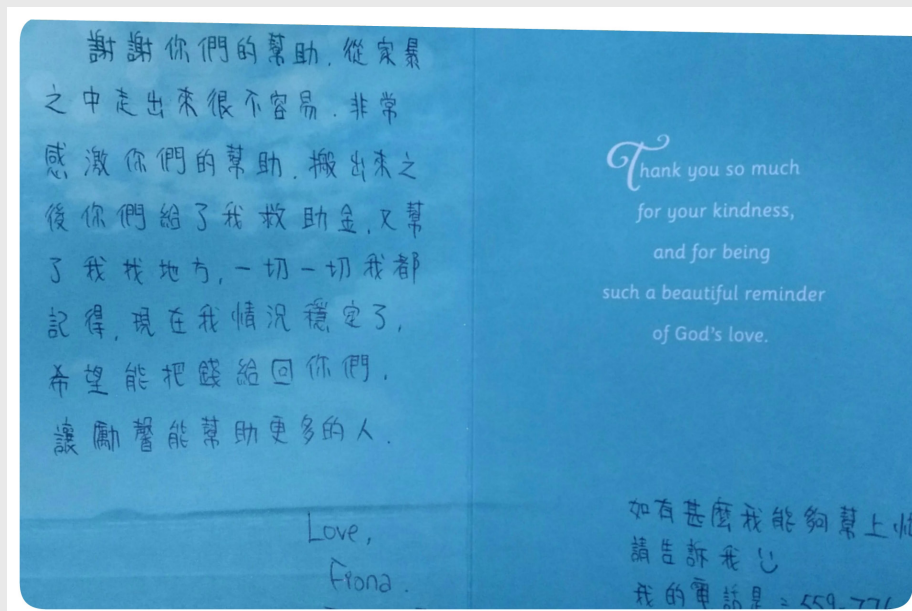 謝謝你們的幫助.從家暴
之中走出來很不容易.非常
感激你們的幫助.搬出來之
後你們給了我救助金,又幫
了我找地方,一切一切我都
記得,現在我情況穩定了,
希望能把錢給回你們.
讓勵馨能幫助更多的人.
Love,
Fiona.
Thank you so much
for your kindness,
and for being
such a beautiful reminder
of God's love.
如有甚麼我能夠幫上忙
請告訴我
我的電話是:559-771